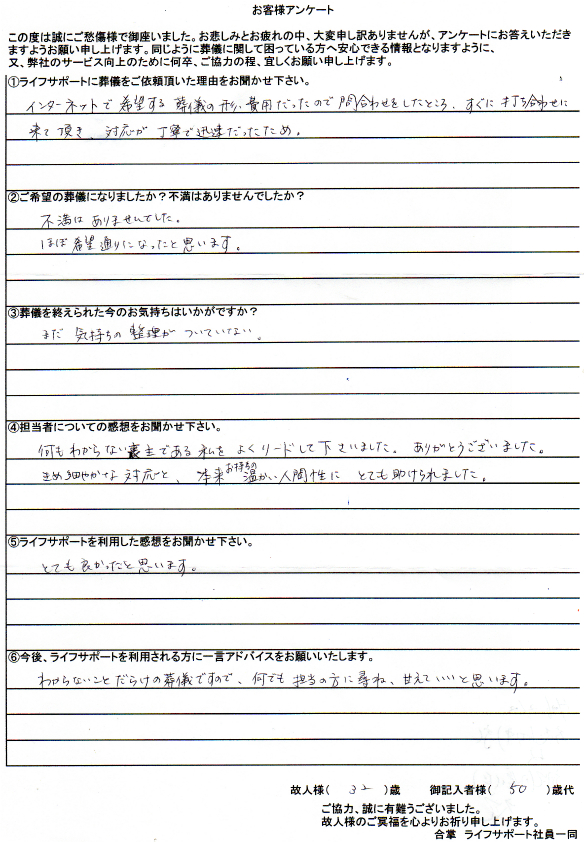 お客様アンケート
この度は誠にご愁傷様で御座いました。お悲しみとお疲れの中、大変申し訳ありませんが、アンケートにお答えいただき
ますようお願い申し上げます。同じように葬儀に関して困っている方へ安心できる情報となりますように、
又、弊社のサービス向上のために何卒、ご協力の程、宜しくお願い申し上げます。
①ライフサポートに葬儀をご依頼頂いた理由をお聞かせ下さい。
インターネットで希望する葬儀の形、費用だったので問合わせをしたところ、すぐに打ち合わせに
来て頂き、対応が丁寧で迅速だったため。
②ご希望の葬儀になりましたか？不満はありませんでしたか？
不満はありませんでした。
ほぼ希望通りになったと思います。
③葬儀を終えられた今のお気持ちはいかがですか？
まだ気持ちの整理がついていない。
④担当者についての感想をお聞かせ下さい。
何もわからない喪主である私をよくリードして下さいました。ありがとうございました。
きめ細やかな対応と、本来お持ちの温かい人間性にとても助けられました。
⑤ライフサポートを利用した感想をお聞かせ下さい。
とても良かったと思います。
⑥今後、ライフサポートを利用される方に一言アドバイスをお願いいたします。
わからないことだらけの葬儀ですので、何でも担当の方に尋ね、甘えていいと思います。
故人様（ 32 ）歳 御記入者様（ 50 ）歳代
ご協力、誠に有難うございました。
故人様のご冥福を心よりお祈り申し上げます。
合掌 ライフサポート社員一同